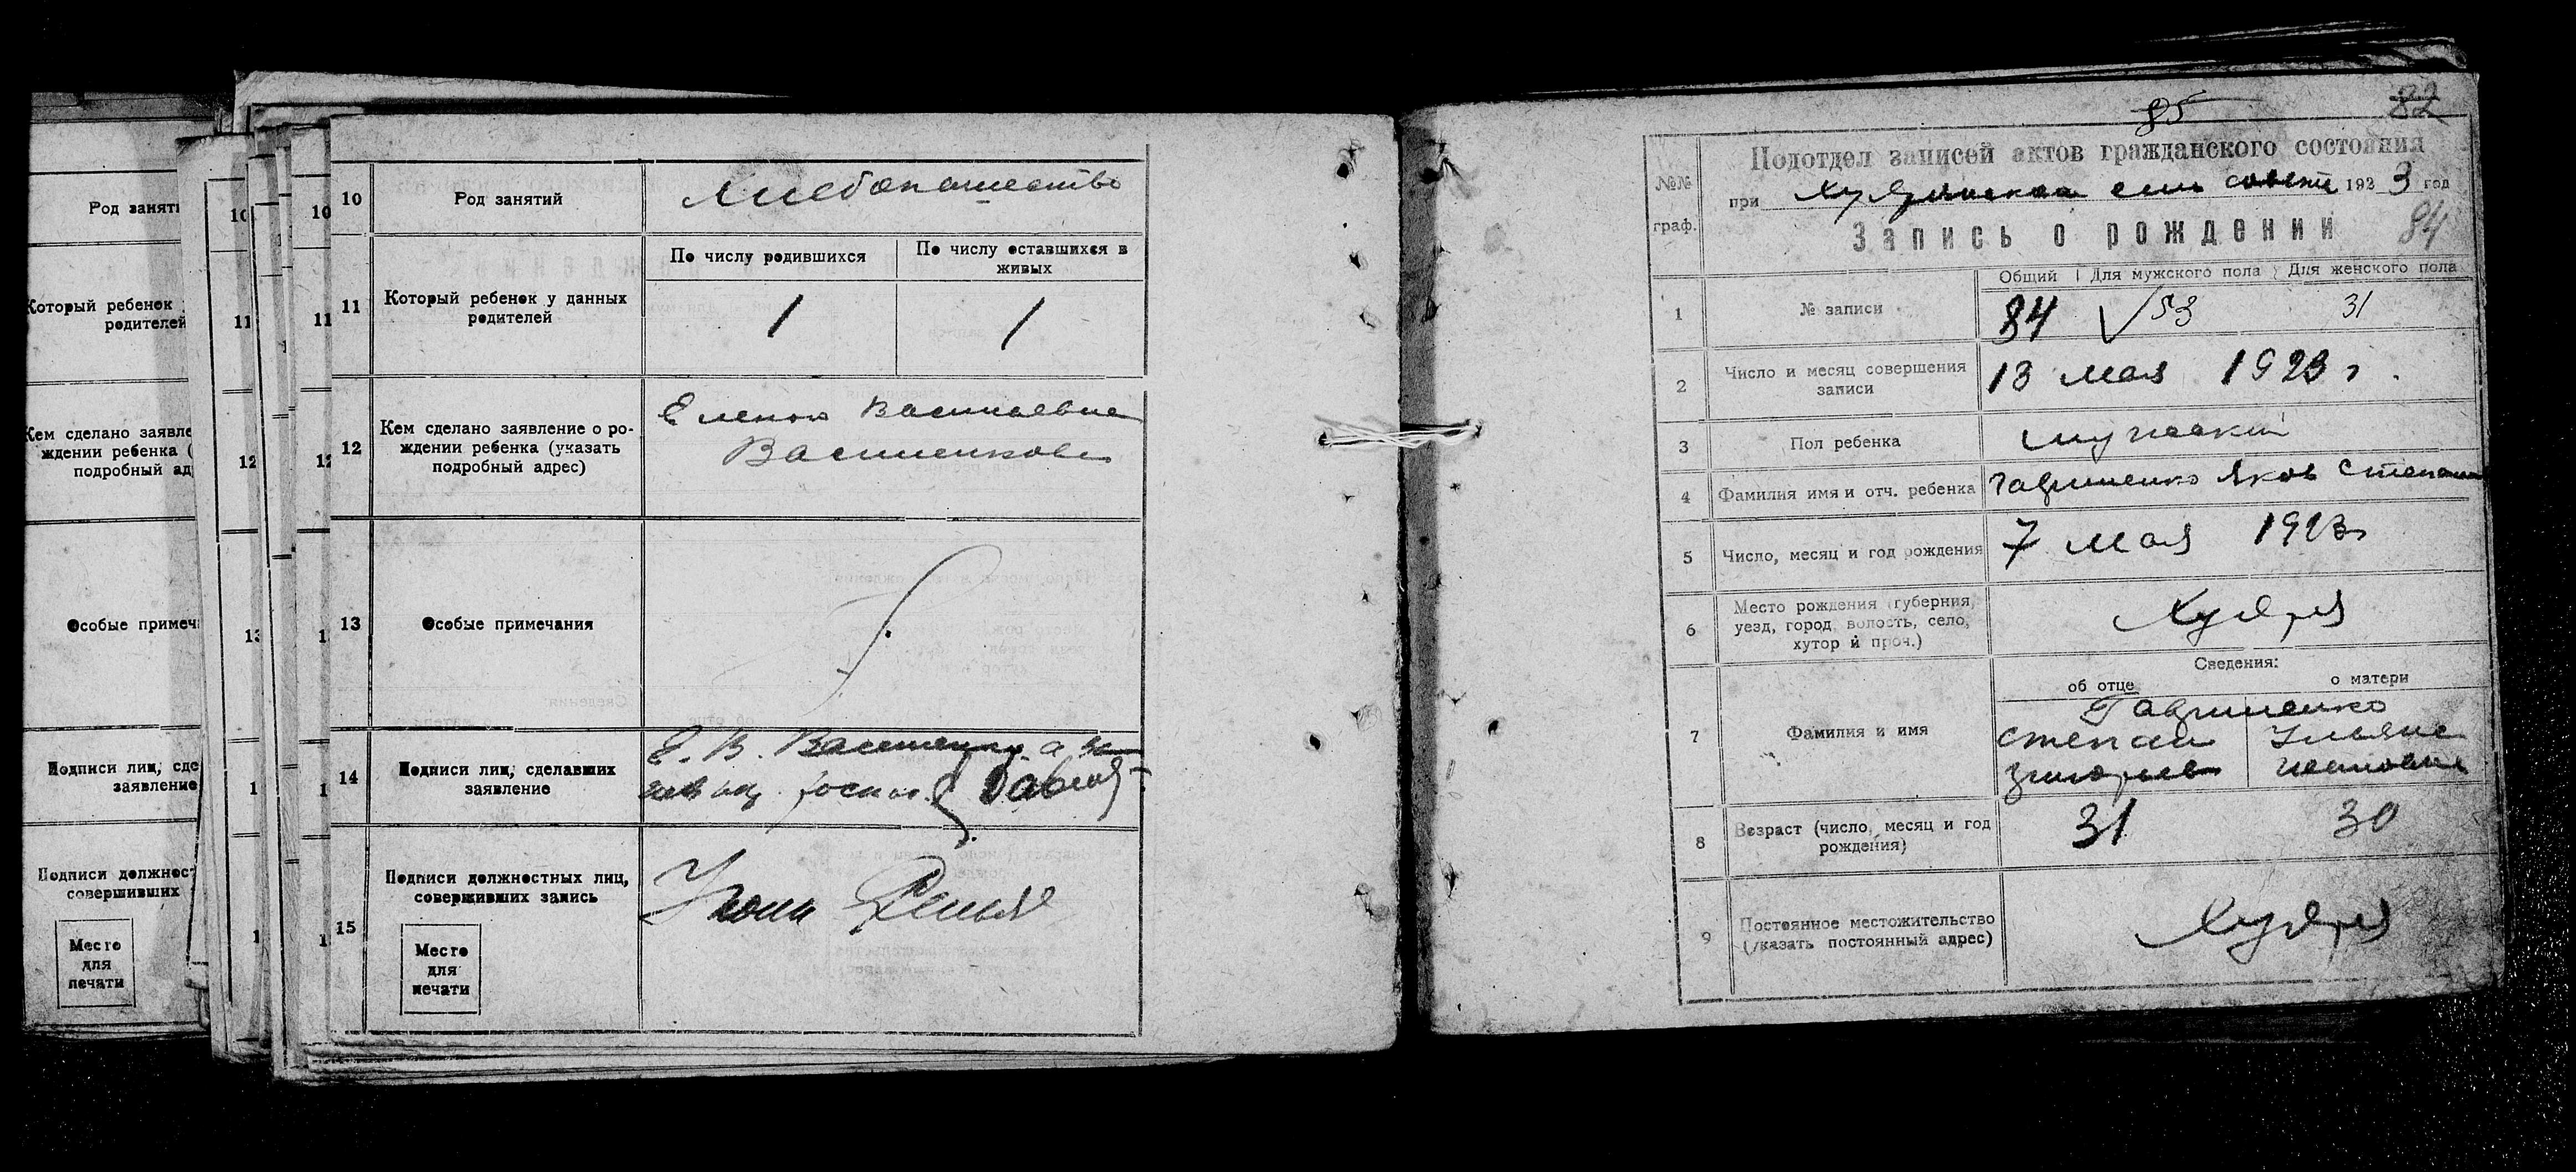 Род заняти
Который ребенок
родителей
Кем сделано заявле
ждении ребенка (
подробный ад
Особые примеч
Подписи лиц, сде
заявление
Подписи должност
совершивших
Место
для
печати
10 Род занятий Хлебопашество
11 Который ребенок у данных
родителей
По числу родившихся По числу оставшихся в
живых
1 1
12 Кем сделано заявление о ро-
ждении ребенка (указать
подробный адрес)
Елена Васильевна
Василенкова
13 Особые примечания
14 Подписи лиц, сделавших
заявление
Е. В.
15 Подписи должностных лиц,
совершивших запись
Место
для
печати
85 82
№№
граф.
Подотдел записей актов гражданского состояния
при сель совете 1923 год
Запись о рождении 84
Общий Для мужского пола Для женского пола
1 № записи 84 √53 31
2 Число и месяц совершения
записи
13 мая 1923 г.
3 Пол ребенка мужской
4 Фамилия имя и отч. ребенка Гавриленко Яков Степан
5 Число, месяц и год рождения 7 мая 1923
6 Место рождения (губерния,
уезд, город, волость, село,
хутор и проч.)
Сведения:
об отце о матери
7 Фамилия и имя
Гавриленко
Степан Ульяна
8 Возраст (число, месяц и год
рождения)
31 30
9 Постоянное местожительство
(указать постоянный адрес)